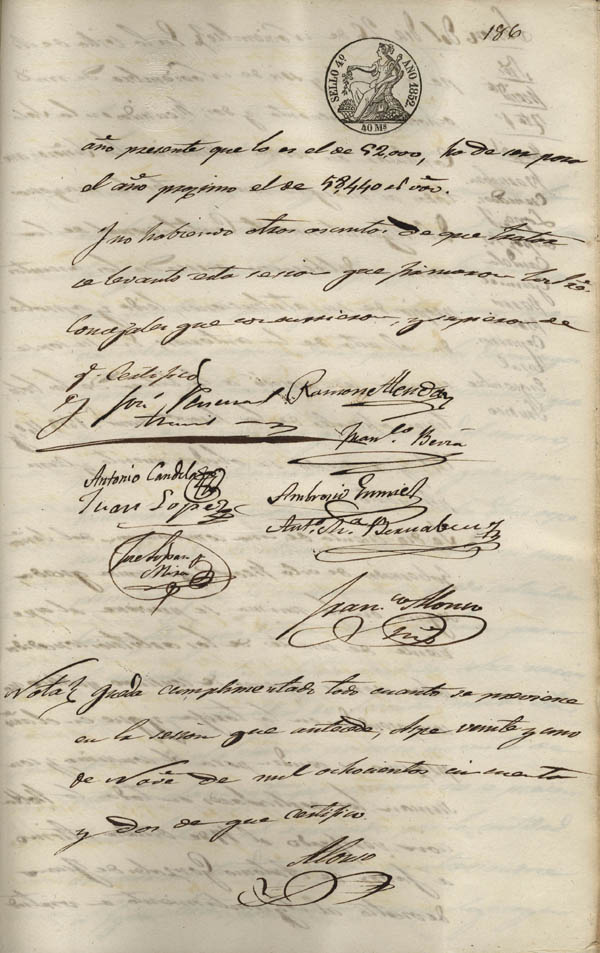 186
SELLO 4º AÑO 1852.
40 Ms
año presente que lo es el de 52,000, ha de ser para
el año proximo el de 58,440 rs von.
Y no habiendo otros asuntos de que tratar
se levantó esta sesion que firmaron los Sres
Concejales que concurrieron, y supieron de
q. Certifico
José Pascual Ramon Alenda
Franco Berná
Antonio Candela
Juan Lopez Ambrosio
Anto Ma Bernabeu
Mira
Franco Alonso
Srio
Nota Queda cumplimentado todo cuanto se previene
en la sesion que antecede, Aspe veinte y uno
de Nove de mil ochocientos cincuenta
y dos de que certifico
Alonso